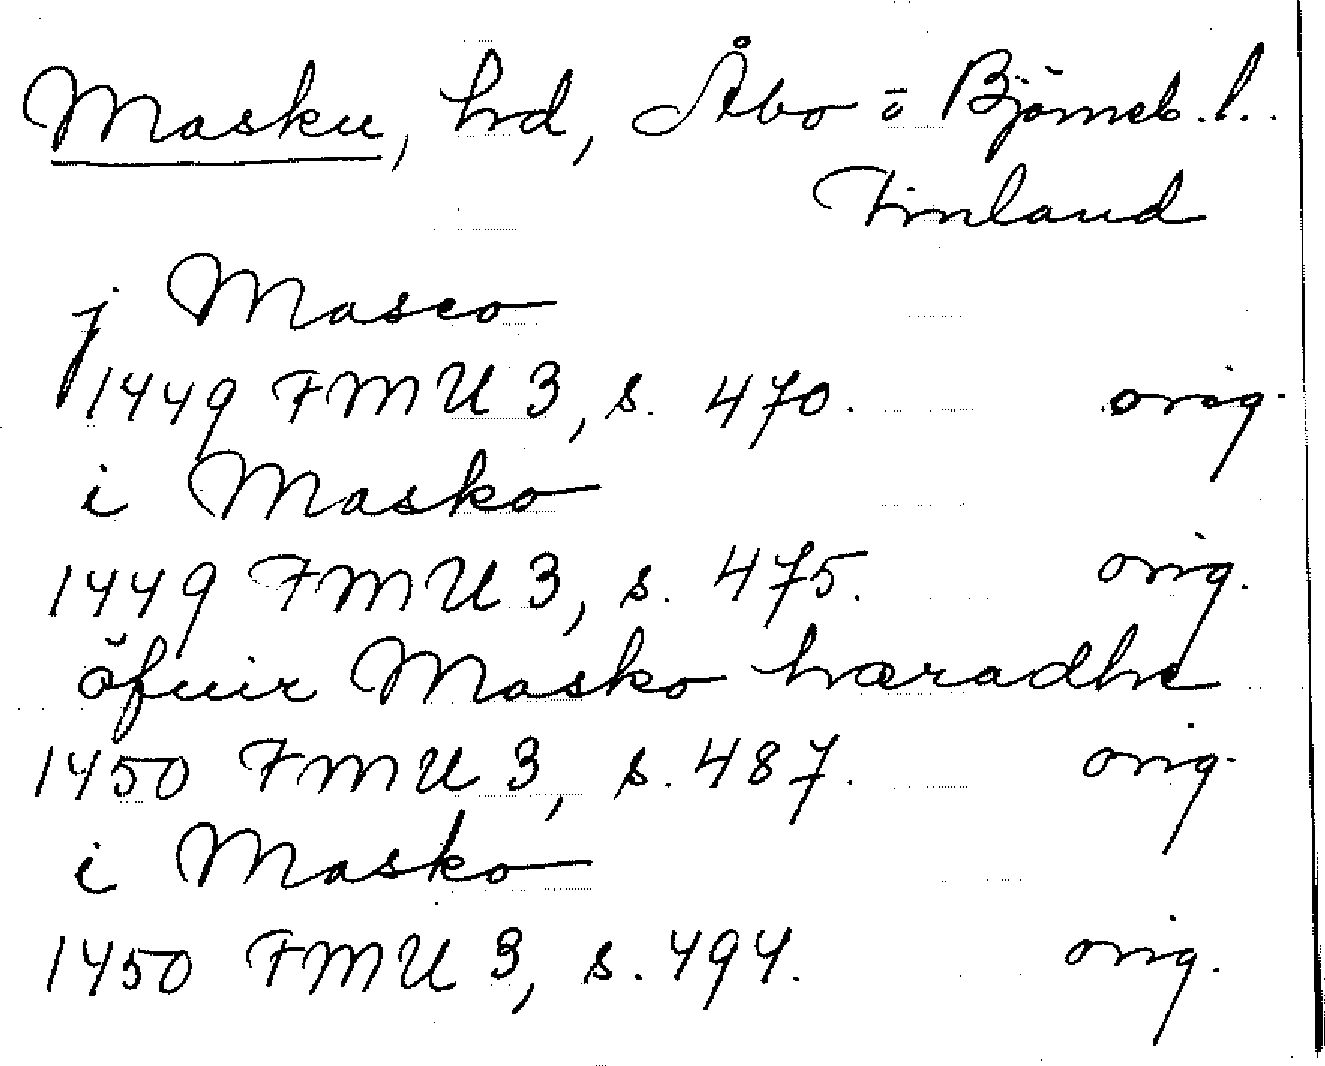 Masku, hd, Åbo o Björneb. l.
Finland
j Masco
1449 FMU 3, s. 470. orig.
i Masko
1449 FMU 3, s. 475. orig.
öfuir Masko hæradhe
1450 FMU 3, s. 487. orig.
i Masko
1450 FMU 3, s. 494. orig.